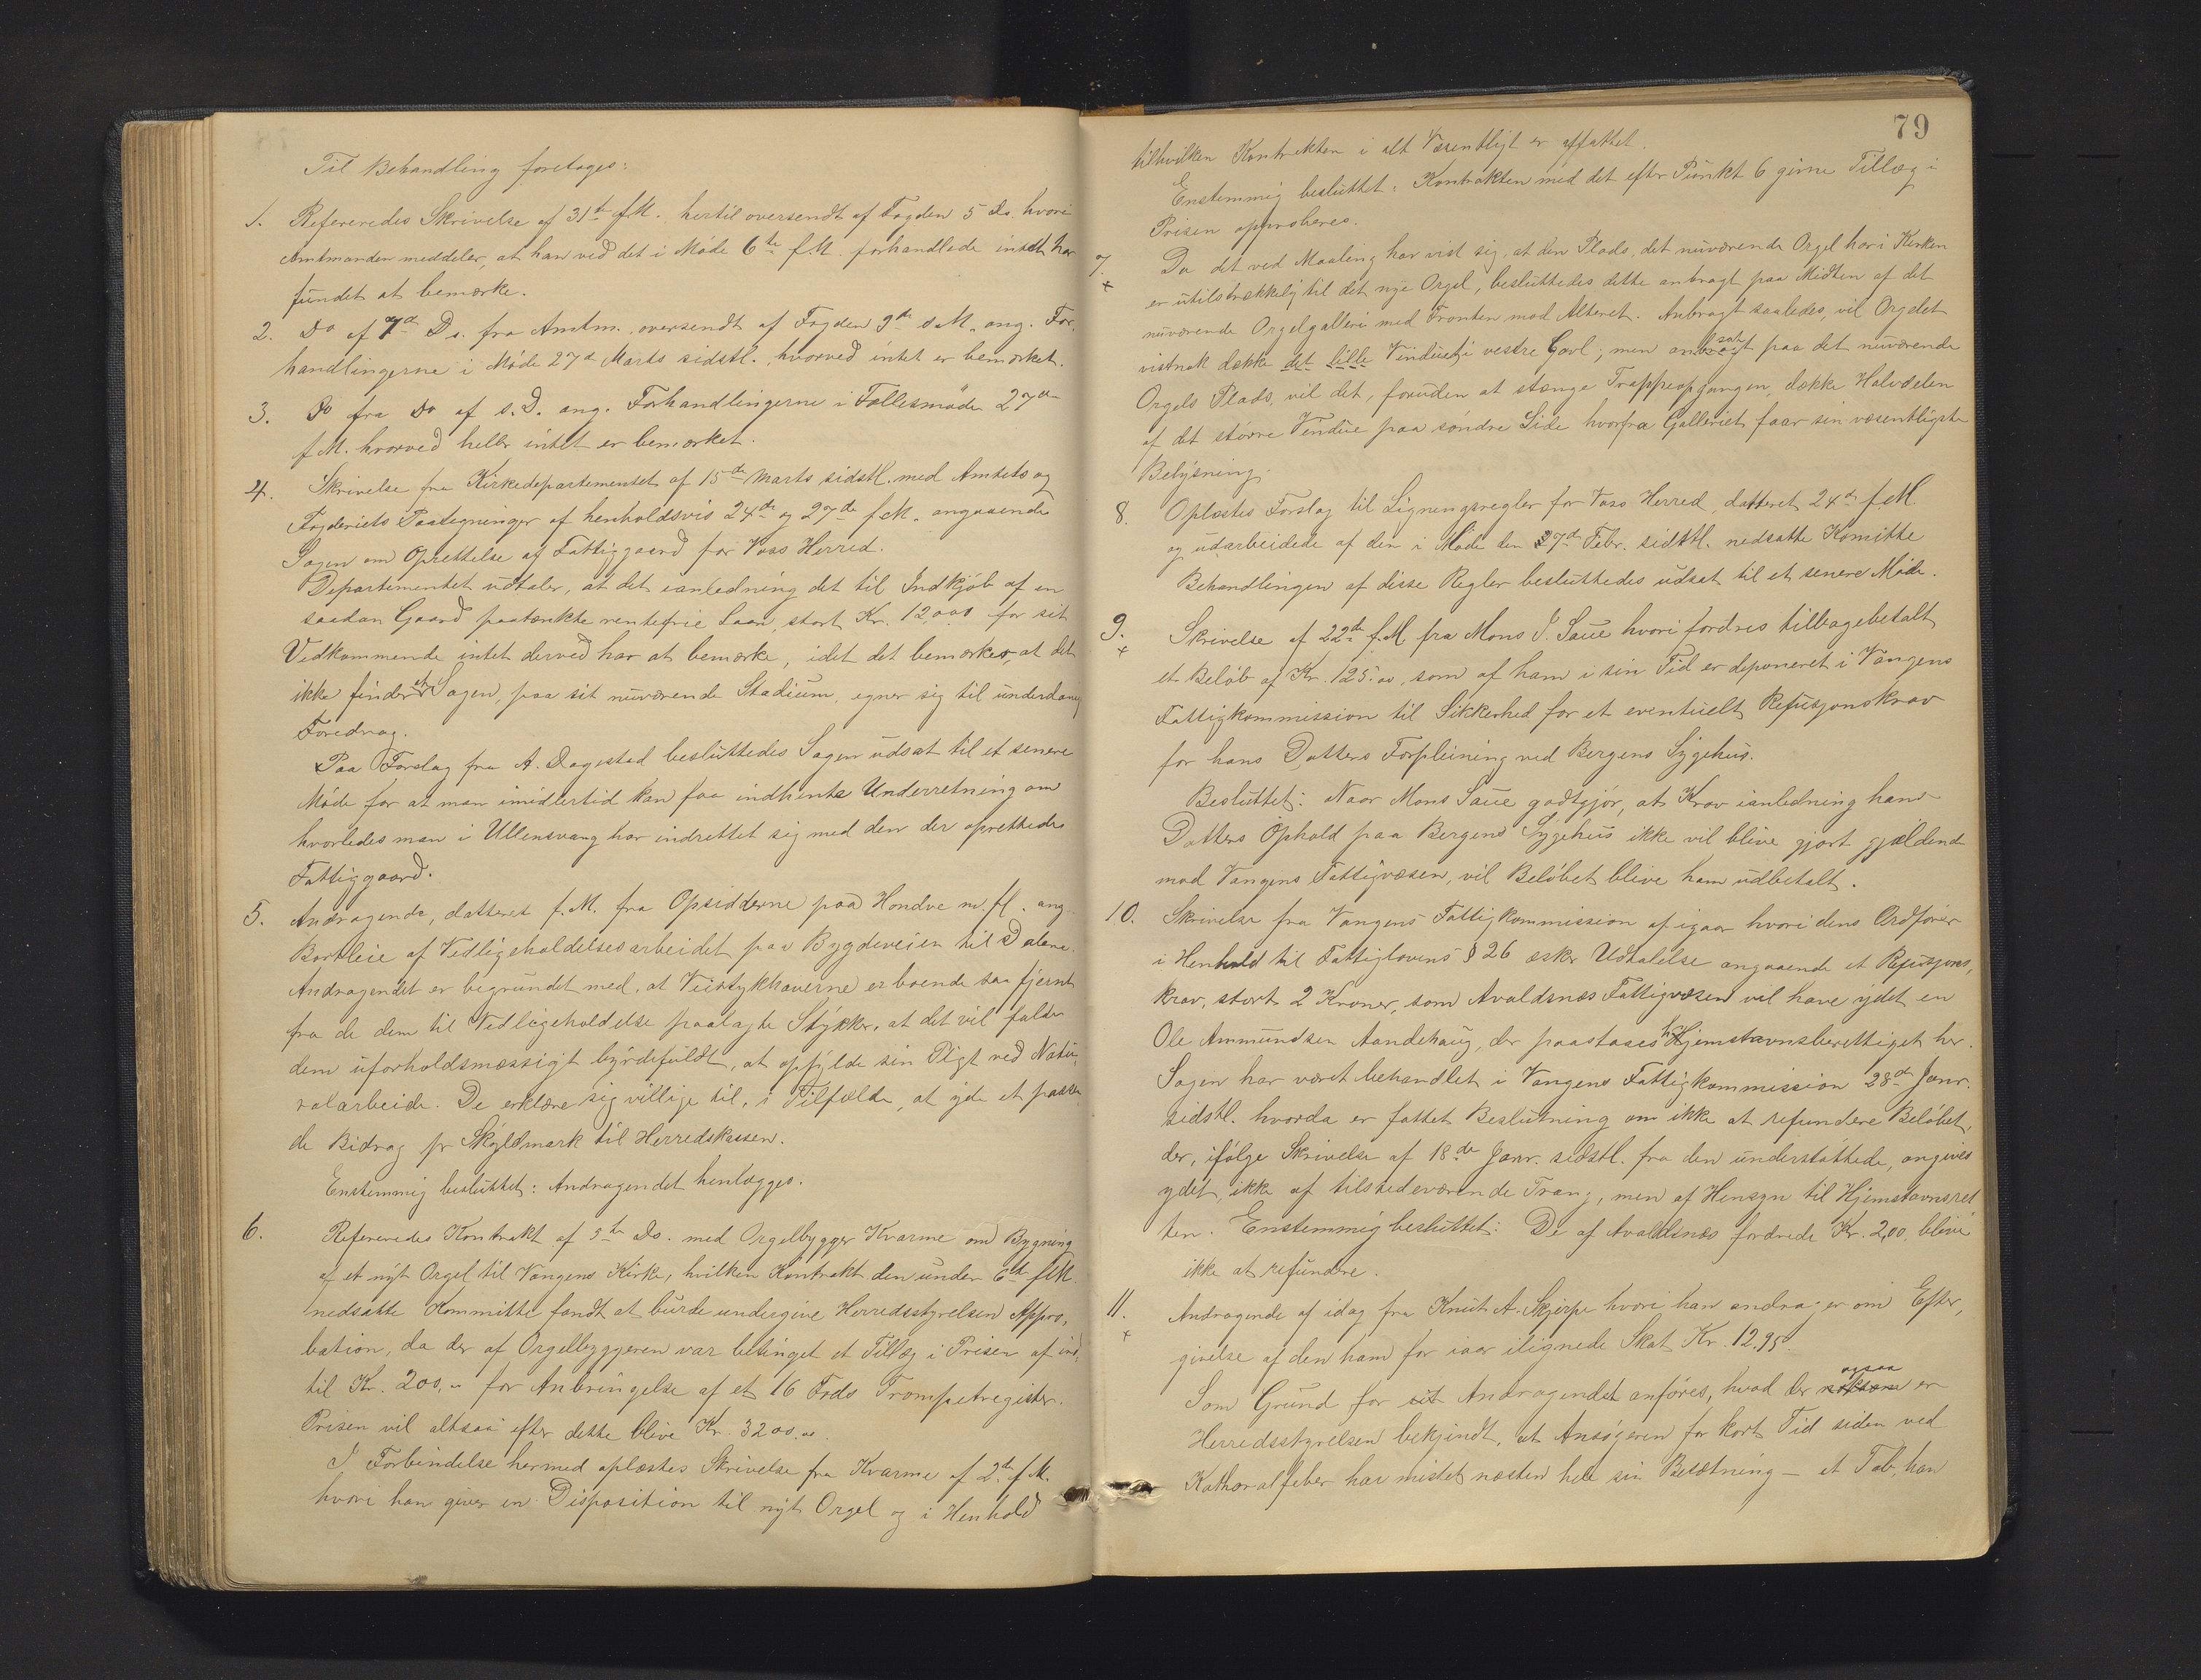 Til Behandling foretages:
1. Refereredes Skrivelse af 31te f.M. hertil oversendt af Fogden 5 ds. hvori
Amtmanden meddeler, at han ved det i Møde 6te f.M. forhandlede intet har
fundet at bemærke.
2. Do af 7de Ds. fra Amtm. oversendt af Fogden 9de d.M. ang. For-
handlingerne i Møde 27de Marts sidstl. hvorved intet er bemærket.
3. Do fra Do af s.D. ang. Forhandlingerne i Fællesmøde 27de
f.M. hvorved heller intet er bemærket.
4. Skrivelse fra Kirkedepartementet af 15de Marts sidstl. med Amtets og
Fogderiets Paategninger af henholdsvis 24de og 27de f.M. angaaende
Sagen om Oprettelse af Fattiggaard for Voss Herred.
Departementet udtaler, at det ianledning det til Indkjøb af en
saadan Gaard paatænkte rentefrie Laan, stort Kr. 12,000 for sit
Vedkommende intet derved har at bemærke, idet det bemærkes, at det
ikke finder at Sagen, paa sit nuværende Stadium, egner sig til underdanig
Foredrag.
Paa Forslag fra A. Dagestad besluttedes Sagen udsat til et senere
Møde for at man imidlertid kan faa indhente Underretning om
hvorledes man i Ullensvang har indrettet sig med den der oprettede
Fattiggaard.
5. Andragende, datteret f.M. fra Opsidderne paa Hondve m.fl. ang.
Bortleie af Vedligeholdelsesarbeidet paa Bygdeveien til Dalene.
Andragendet er begrundet med, at Veistykkhaverne er boende saa fjernt
fra de dem til Vedligeholdelse paalagte Stykker, at det vil falde
dem uforholdsmæssigt byrdefuldt, at opfylde sin Pligt ved Natu-
ralarbeide. De erklære sig villige til, i Tilfælde, at yde et passen
de Bidrag pr Skyldmark til Herredskassen.
Enstemmig besluttet: Andragendet henlægges.
6. Refereredes Kontrakt af 5te Ds. med Orgelbygger Kvarme om Bygning
af et nyt Orgel til Vangens Kirke, hvilken Kontrakt den under 6te f.M.
nedsatte Kommitte fandt at burde undergive Herredsstyrelsen Appro-
bation, da der af Orgelbyggeren var betinget et Tillæg i Prisen af ind-
til Kr. 200,- for Anbringelse af et 16 Fods Trompetregister.
Prisen vil altsaa efter dette blive Kr. 3200.00.
I Forbindelse hermed oplæstes Skrivelse fra Kvarme af 2de f.M.
hvori han giver en Disposition til nyt Orgel og i Henhold
79
tilhvilken Kontrakten i alt Væsentligt er affattet.
Enstemmig besluttet: Kontrakten med det efter Punkt 6 givne Tillæg i
Prisen approberes.
7. Da det ved Maaling har vist sig, at den Plads, det nuværende Orgel har i Kirken
x er utilstrækkelig til det nye Orgel, besluttedes dette anbragt paa Midten af det
nuværende Orgelgalleri med Fronten mod Alteret. Anbragt saaledes, vil Orgelet
vistnok dække det lille Vindue i vestre Gavl; men ansat paa det nuværende
Orgels Plads, vil det, foruden at stænge Trappeopgangen, dække Halvdelen
af det større Vindue paa søndre Side hvorfra Galleriet faar sin væsentligste
Belysning.
8. Oplæstes Forslag til Ligningsregler for Voss Herred, datteret 24de f.M.
og udarbeidede af den i Møde den 27de Febr. sidstl. nedsatte Komitte
Behandlingen af disse Regler besluttedes udsat til et senere Møde.
9. Skrivelse af 22de f.M. fra Mons J. Saue hvori fordres tilbagebetalt
x et Beløb af Kr. 125.00, som af ham i sin Tid er deponeret i Vangens
Fattigkommission til Sikkerhed for et eventuelt Refusjonskrav
for hans Datters Forpleining ved Bergens Sygehus.
Besluttet: Naar Mons Saue godtgjør, at Krav ianledning hans
Datters Ophold paa Bergens Sygehus ikke vil blive gjort gjældende
mod Vangens Fattigvæsen, vil Beløbet blive ham udbetalt.
10. Skrivelse fra Vangens Fattigkommission af igaar hvori dens Ordfører
i Henhold til Fattiglovens § 26 æsker Udtalelse angaaende et Refusjons-
krav, stort 2 Kroner, som Avaldsnæs Fattigvæsen vil have ydet en
Ole Ammundsen Aandehaug, der paastaaes hjemstavnsberettiget her.
Sagen har været behandlet i Vangens Fattigkommission 28de Janr.
sidstl. hvorda er fattet Beslutning om ikke at refundere Beløbet,
der, ifølge Skrivelse af 18de Janr. sidstl. fra den understøttede, angives
ydet, ikke af tilstedeværende Trang, men af Hensyn til Hjemstavnsret
ten. Enstemmig besluttet: De af Avaldsnæs fordrede Kr. 2,00, blive
ikke at refundere.
11. Andragende af idag fra Knut A. Skjerpe hvori han andrager om Efter-
x givelse af den ham for iaar ilignede Skat Kr. 12.95.
Som Grund for Andragendet anføres, hvad der ogsaa er
Herredsstyrelsen bekjendt, at Ansøgeren for kort Tid siden ved
Katharalfeber har mistet næsten hele sin Besætning — et Tab, han